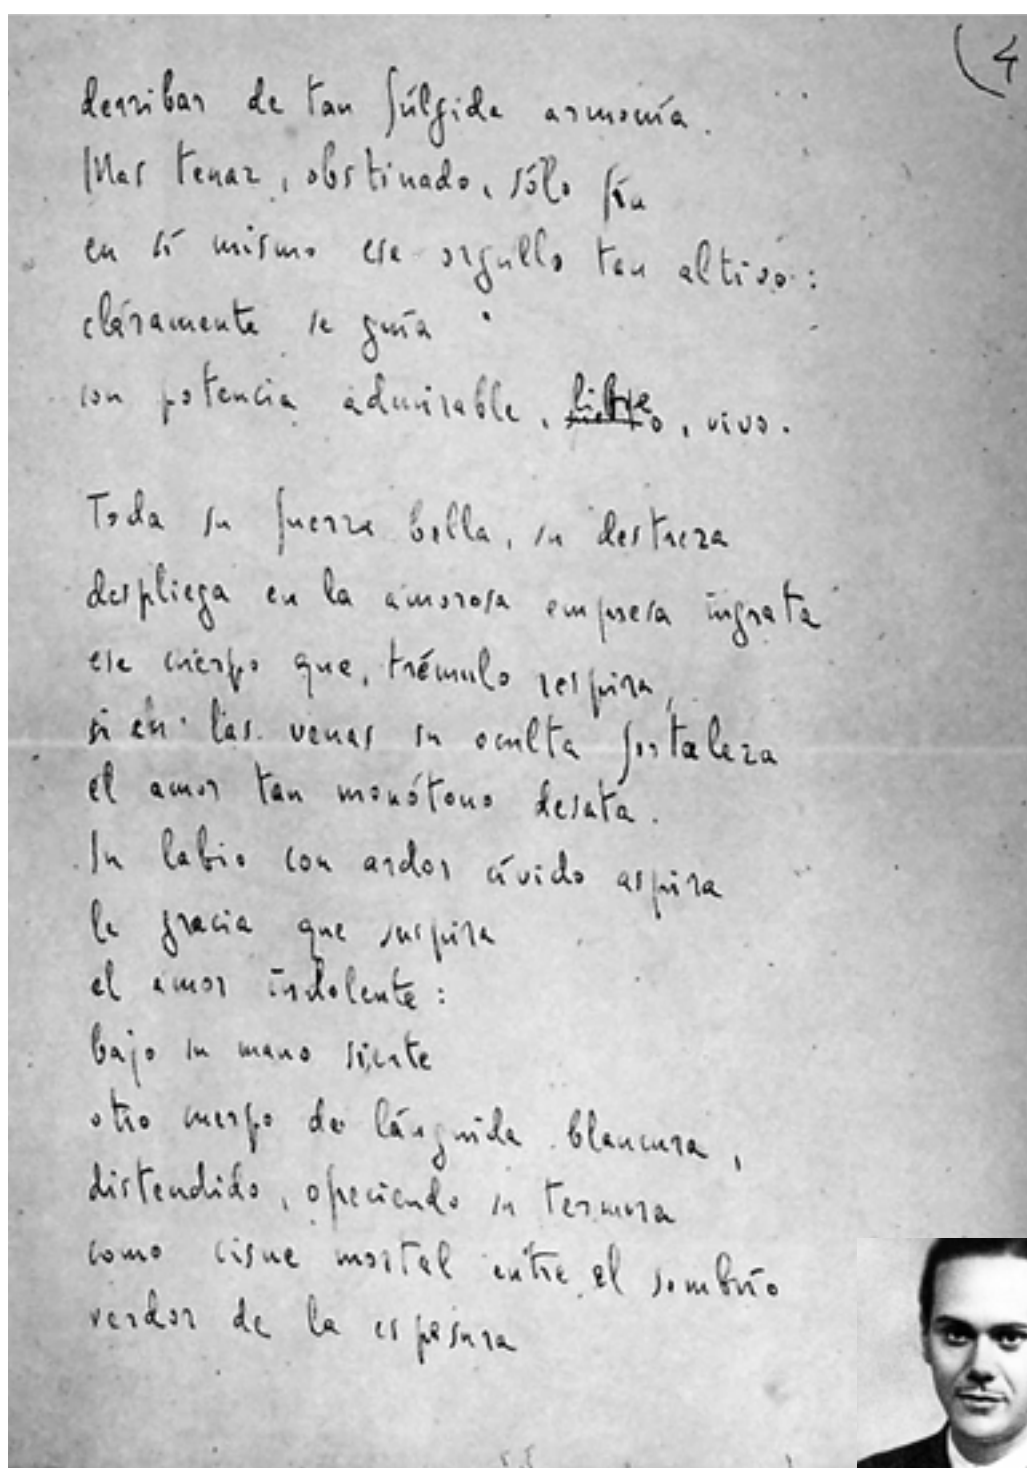 (4
derribar de tan fúlgida armonía.
Mas tenaz, obstinado, sólo fía
en sí mismo ese orgullo tan altivo:
cláramente se guía
con potencia admirable, libre, vivo.
Toda su fuerza bella, su destreza
despliega en la amorosa empresa ingrata
ese cuerpo que, trémulo respira,
si en las venas su oculta fortaleza
el amor tan monótono desata.
Su labio con ardor ávido aspira
la gracia que suspira
el amor indolente:
bajo su mano siente
otro cuerpo de lánguida blancura,
distendido, ofreciendo su ternura
como cisne mortal entre el sombrío
verdor de la espesura